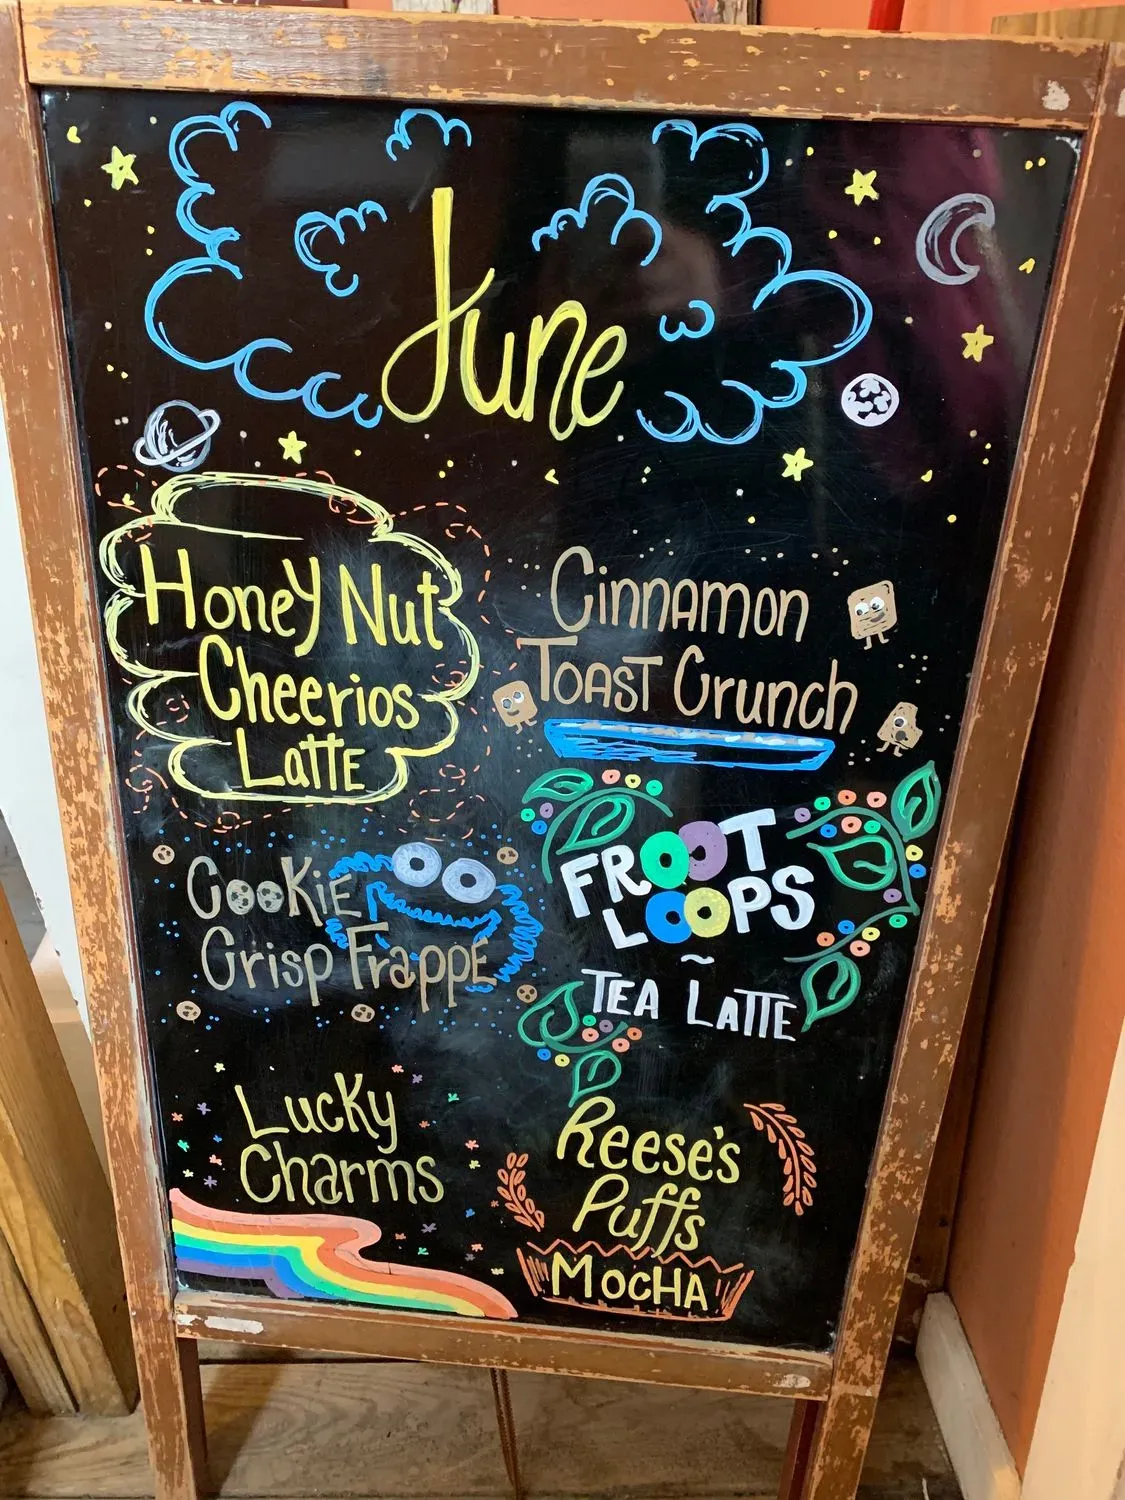 June
Honey Nut
Cheerios
Latte
Cinnamon
Toast Crunch
Cookie
Crisp Frappe
FROOT
LOOPS
~
TEA LATTE
Lucky
Charms
Reese's
Puffs
MOCHA